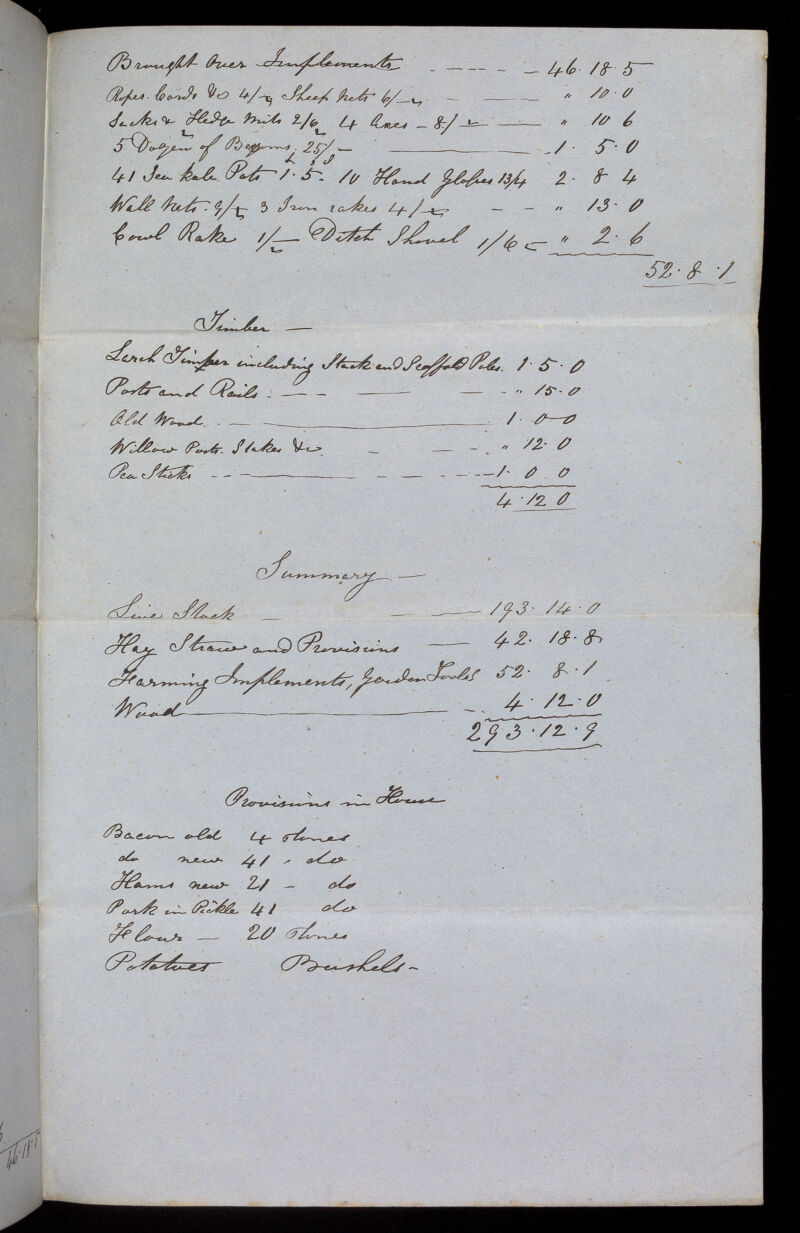 Brought Over Implements - - - - - 46.18.5
Ropes. Cords &c 4/- Sheep Nets 6/- - — " 10.0
Sacks & Hedge Mits 2/6 4 Axes - 8/- — " 10 6
5 Dozen of Bessoms 25/- — 1. 5.0
41 Sea kale Pots £1. 5s - 10 Hand Glasses 13/4 2. 8 4
Wall Nets. 9/- 3 Iron rakes 4/- - - " 13. 0
Cowl Rake 1/- Ditch Shovel 1/6 " 2. 6
52. 8. 1
Timber —
Larch Timber including Stack and Scaffold Poles. 1. 5. 0
Posts and Rails. - - - — - - " 15. 0
Old Wood. - — 1. 0 0
Willow Posts. Stakes &c. - - - - " 12. 0
Pea Sticks - - — - - - - 1. 0 0
4. 12 0
Summary —
Live Stock - — 193. 14. 0
Hay Straw and Provisions — 42. 18. 8
Farming Implements, Garden Tools 52. 8. 1
Wood — - 4. 12. 0
293. 12. 9
Provisions in House
Bacon old 4 Stones
do new 41 - do
Hams new 21 - do
Pork in Pickle 41 do
Flour — 20 Stones
Potatoes Bushels -
46.18.5